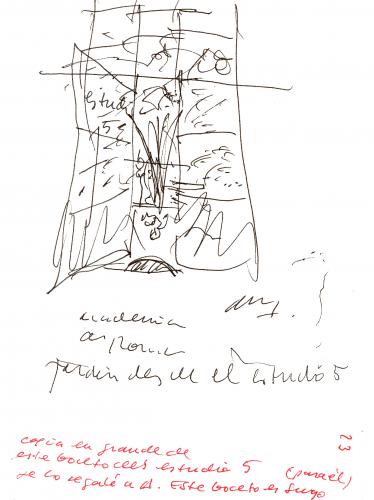 estudio
5
academia
de Roma
jardín desde el estudio 5
copia en grande de
este boceto del estudio 5 (para él)
se lo regalé a él. Este boceto es suyo
23